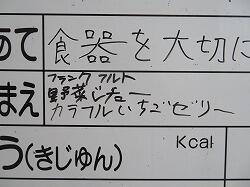 めて 食器を大切に
フランクフルト
まえ 野菜シチュー
カラフルいちごゼリー
Kcal
う(きじゅん)